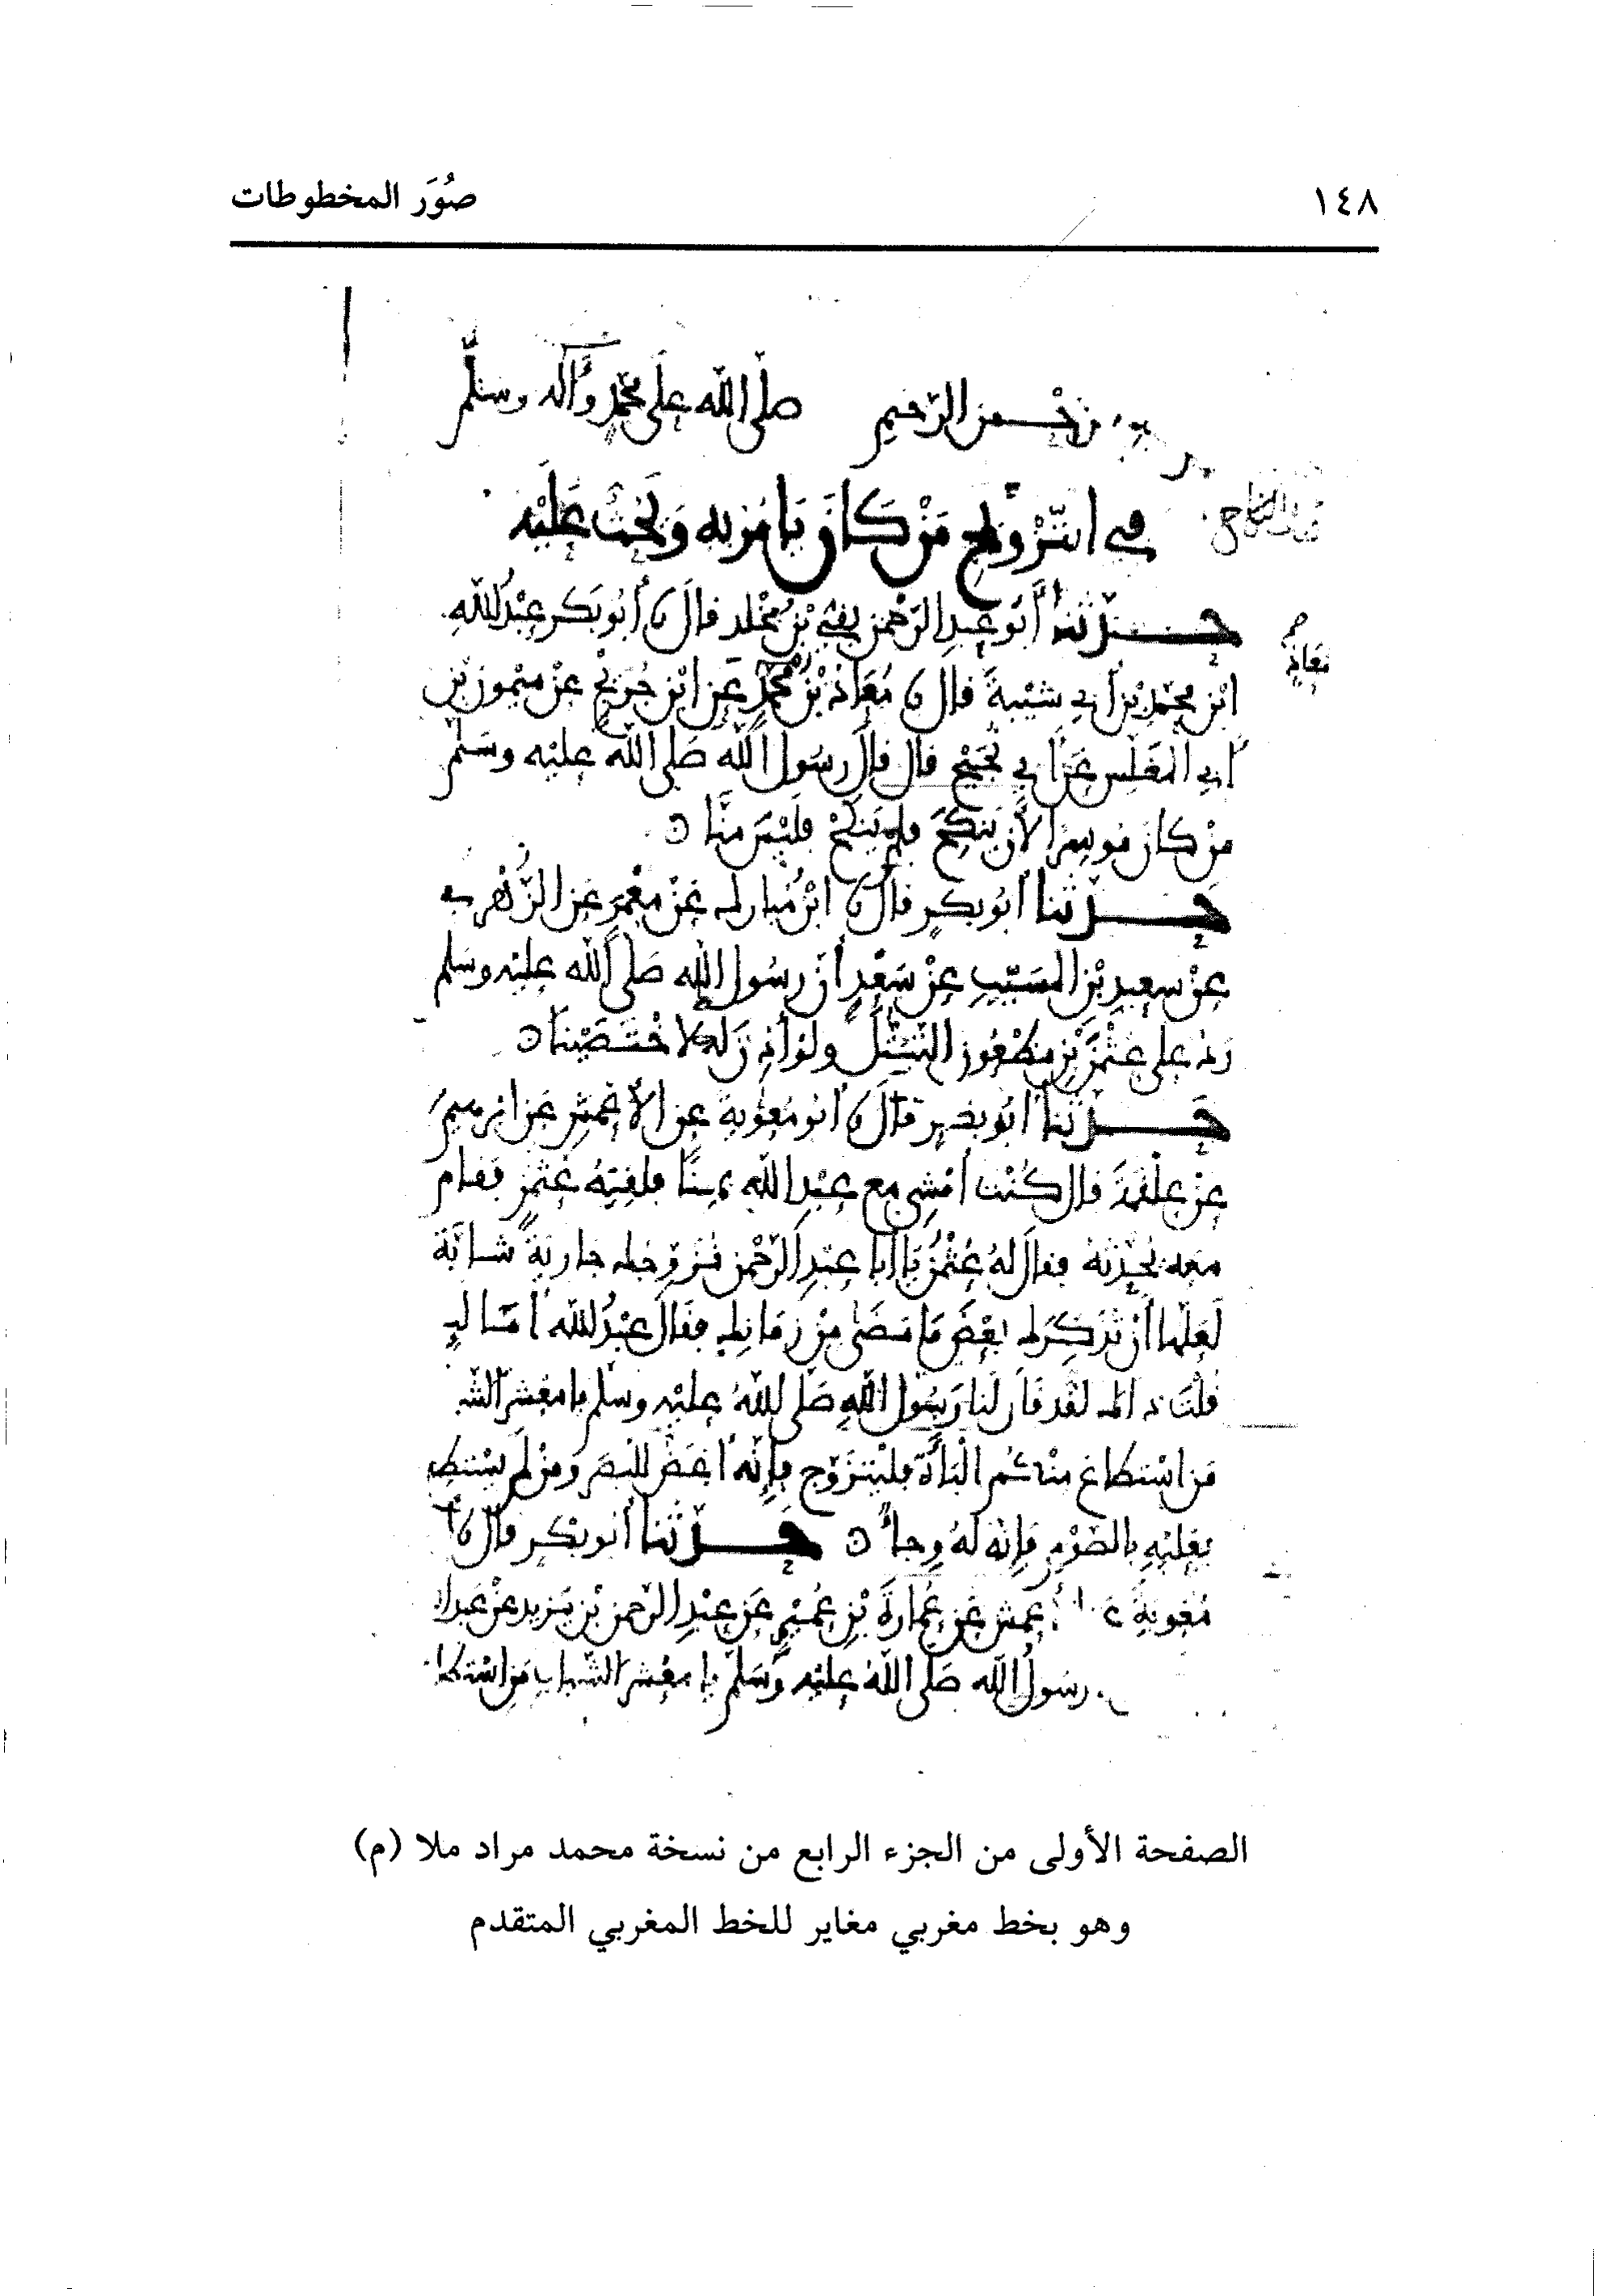 ١٤٨
صُوَر المخطوطات
الرحمن الرحيم صلى الله على محمد وآله وسلم
في التزويج من كان يامر به ويحث عليه
حدثنا أبو عبد الرحمن بقي بن مخلد قال نا أبو بكر عبد الله
ابن محمد بن أبي شيبة قال نا معاذ بن محمد عن ابن جريج عن ميمون بن
معاذ
أبي المغلس عن أبي نجيح قال قال رسول الله صلى الله عليه وسلم
من كان موسرا لأن ينكح فلم ينكح فليس منا
حدثنا أبو بكر قال نا ابن مبارك عن معمر عن الزهري
عن سعيد بن المسيب عن سعد أن رسول الله صلى الله عليه وسلم
رد على عثمن بن مظعون التبتل ولو أذن له لاختصينا
حدثنا أبو بكر قال نا أبو معوية عن الأعمش عن ابرهيم
عن علقمة قال كنت أمشي مع عبد الله بمنا فلقيه عثمن فقام
معه يحدثه فقال له عثمن يا أبا عبد الرحمن فنزوجك جارية شابة
لعلها أن تذكرك بعض ما مضى من زمانك فقال عبد الله أما لين
قلت ذاك لقد قال لنا رسول الله صلى الله عليه وسلم يا معشر الشب
من استطاع منكم الباءة فليتزوج فإنه أغض للبصر ومن لم يستطع
فعليه بالصوم فإنه له وجاء حدثنا أبو بكر قال نا أبو
معوية عن الأعمش عن عمارة بن عمير عن عبد الرحمن بن يزيد عن عبد الله
رسول الله صلى الله عليه وسلم يا معشر الشباب من استطاع
الصفحة الأولى من الجزء الرابع من نسخة محمد مراد ملا (م)
وهو بخط مغربي مغاير للخط المغربي المتقدم